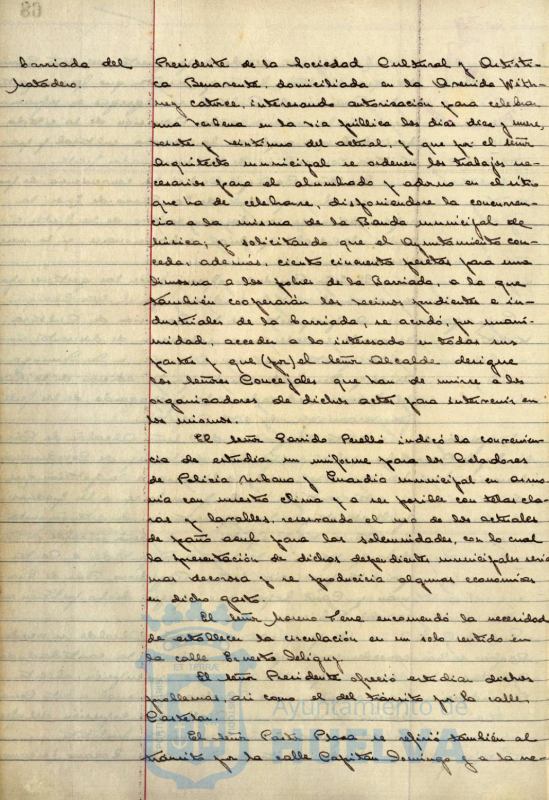 barriada del
Matadero.
Presidente de la Sociedad Cultural y Artísti-
ca Benavente, domiciliada en la Avenida With-
ney catorce, interesando autorización para celebrar
una verbena en la vía pública los días diez y nueve,
veinte y veintiuno del actual, y que por el señor
Arquitecto municipal se ordenen los trabajos ne-
cesarios para el alumbrado y adorno en el sitio
que ha de celebrarse, disponiendose la concurren-
cia a la misma de la Banda municipal de
Música; y solicitando que el Ayuntamiento con-
ceda, además, ciento cincuenta pesetas para una
limosna a los pobres de la barriada, a la que
también cooperarán los vecinos pudientes e in-
dustriales de la barriada, se acordó, por unani-
midad, acceder a lo interesado en todas sus
partes y que (por) el señor Alcalde designe
los señores Concejales que han de unirse a los
organizadores de dichos actos para intervenir en
los mismos.
El señor Garrido Perelló indicó la convenien-
cia de estudiar un uniforme para los Celadores
de Policía Urbana y Guardia municipal en armo-
nía con nuestro clima y a ser posible con telas cla-
ras y lavables, reservando el uso de los actuales
de paño azul para las solemnidades, con lo cual
la presentación de dichos dependientes municipales sería
mas decorosa y se produciría algunas economías
en dicho gasto.
El señor Moreno encomendó la necesidad
de establecer la circulación en un solo sentido en
la calle Ernesto Deligny
El señor Presidente ofreció estudiar dichos
problemas así como el del tránsito por la calle
Castelar.
El señor Pastor Plaza se refirió también al
tránsito por la calle Capitán Domingo y a la ne-
Ayuntamiento de
HUELVA